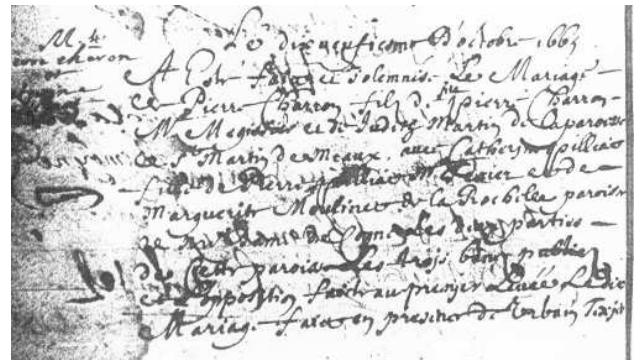 Le dixneufiesme D'octobre 1665
A Esté faict et solemnisé Le Mariage
de Pierre Charron fils de Pierre Charron
Me Megissier et de Judith Martin de La paroisse
de St Martin de Meaux. avec Catherine pilliar
fille de Pierre pilliar et de
Marguerite Moulinet de la Rochelle paroisse
de Dame de Cougne les deux parties
de Cette paroisse Les trois bans publiez
et opposition faicte au premier Levée Ledit
Mariage faict en presence de Urbain Tessier